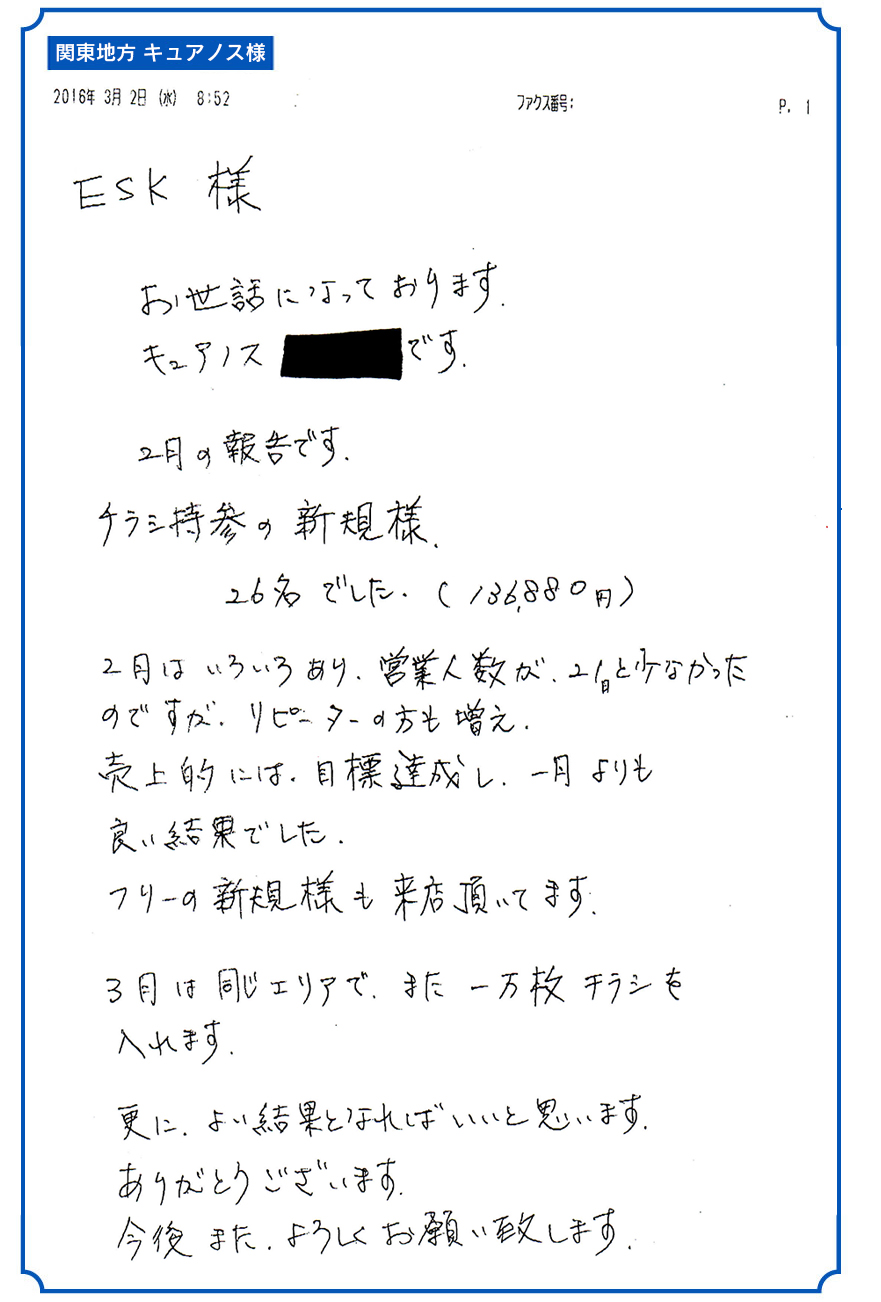 関東地方 キュアノス様
2016年 3月 2日 (水) 8:52 ファクス番号: P. 1
ESK 様
お世話になっております.
キュアノス です.
2月の報告です.
チラシ持参の新規様.
26名でした. (136,880円)
2月はいろいろあり、営業人数が、21日と少なかった
のですが、リピーターの方も増え.
売上的には、目標達成し、一月よりも
良い結果でした.
フリーの新規様も来店頂いてます.
3月は同じエリアで、また一万枚チラシを
入れます.
更に、よい結果となればいいと思います.
ありがとうございます.
今後また、よろしくお願い致します.